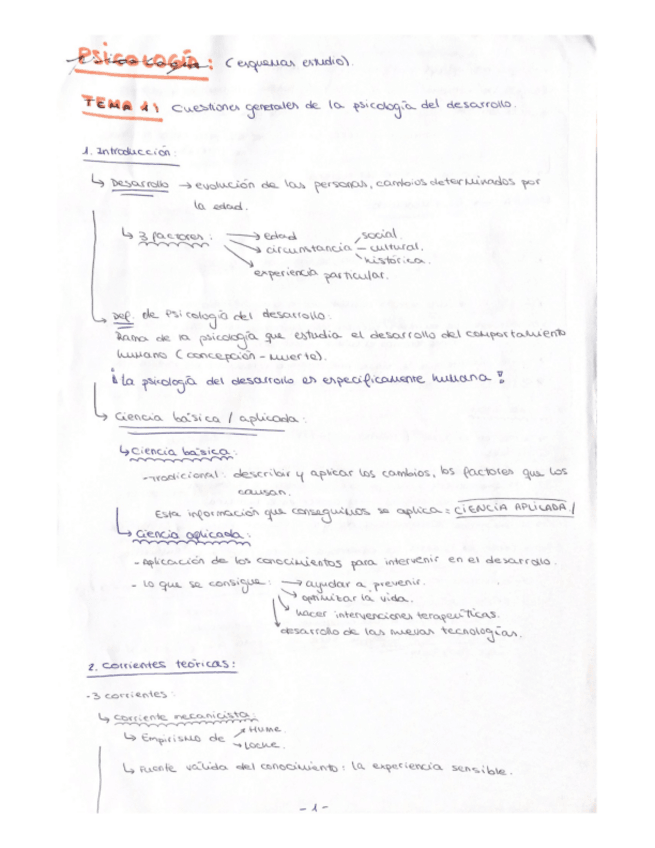 PSICOLOGÍA: (esquemas estudio).
TEMA 1: Cuestiones generales de la psicología del desarrollo.
1. Introducción:
↳ Desarrollo → evolución de las personas, cambios determinados por
la edad.
↳ 3 factores: → edad
→ circunstancia – social.
– cultural.
– histórica.
→ experiencia particular.
↳ Def. de Psicología del desarrollo:
Rama de la psicología que estudia el desarrollo del comportamiento
humano (concepción - muerte).
¡La psicología del desarrollo es específicamente humana!
↳ Ciencia básica / aplicada:
↳ Ciencia básica:
- Tradicional: describir y aplicar los cambios, los factores que los
causan.
Esta información que conseguimos se aplica = CIENCIA APLICADA /
↳ Ciencia aplicada:
- Aplicación de los conocimientos para intervenir en el desarrollo.
- Lo que se consigue: → ayudar a prevenir.
→ optimizar la vida.
→ hacer intervenciones terapeúticas.
→ desarrollo de las nuevas tecnologías.
2. Corrientes teóricas:
- 3 corrientes:
↳ Corriente mecanicista:
↳ Empirismo de → Hume.
→ Locke.
↳ Fuente válida del conocimiento: la experiencia sensible.
- 1 -